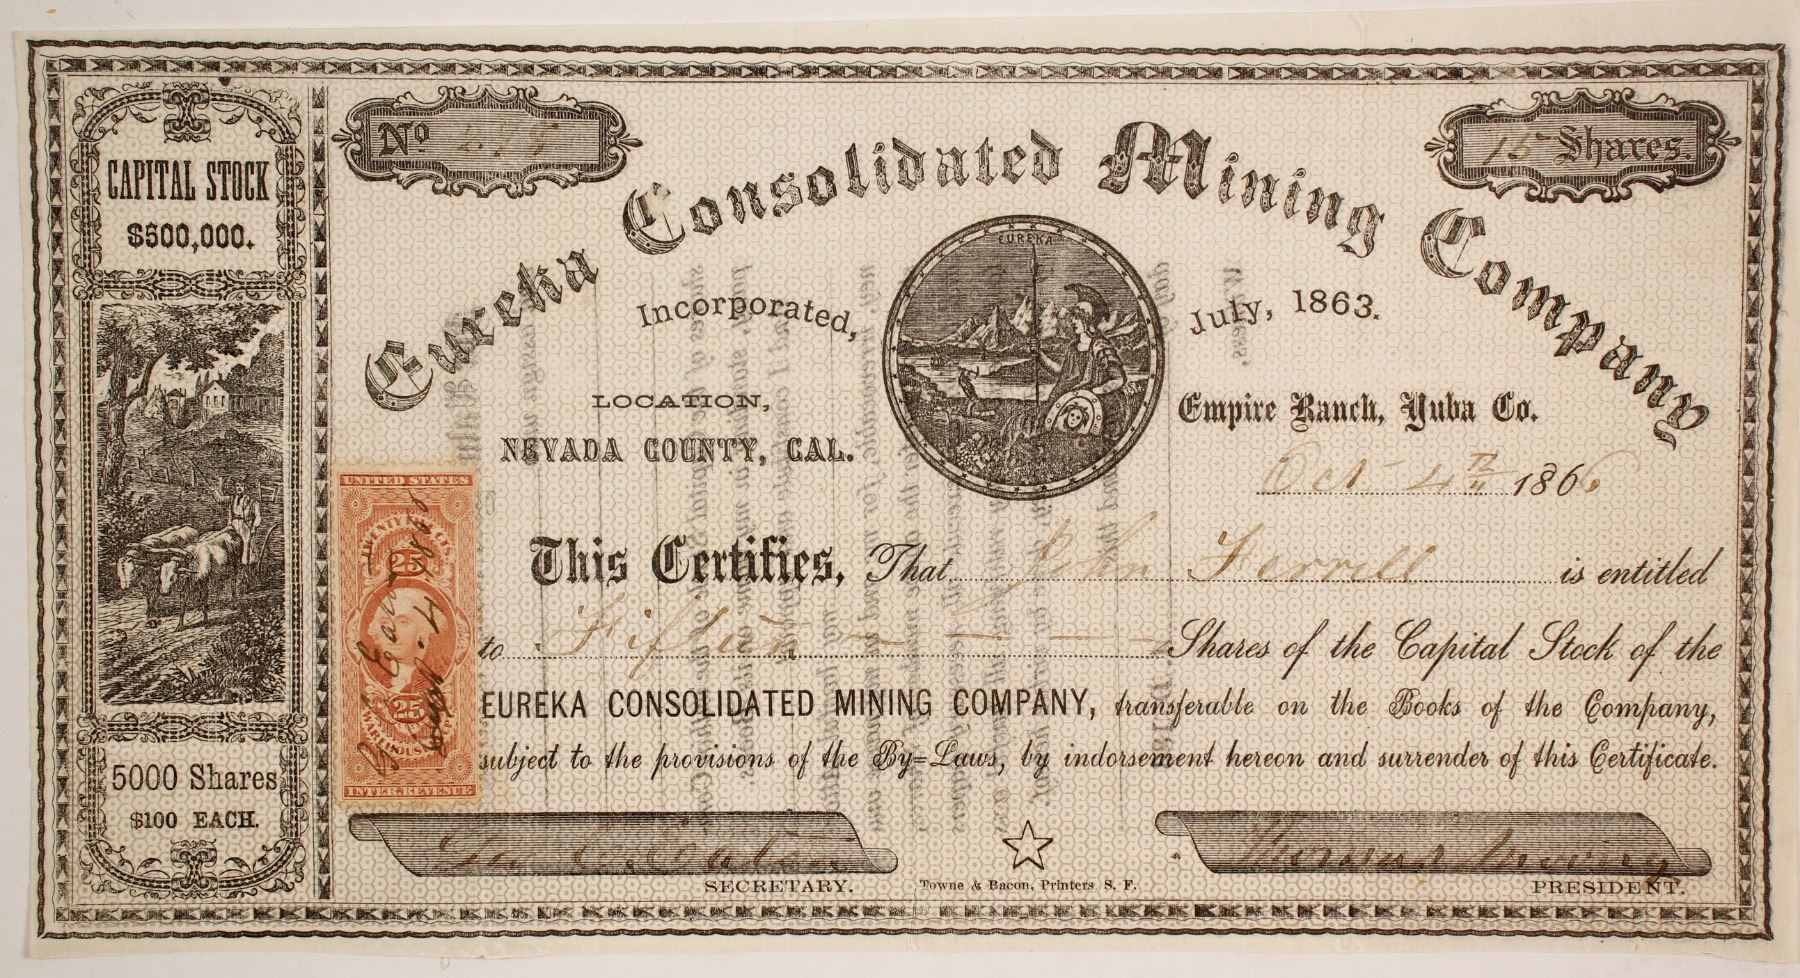 CAPITAL STOCK
$500,000.
5000 Shares
$100 EACH.
No
15 Shares.
Eureka Consolidated Mining Company
EUREKA
Incorporated, July, 1863.
LOCATION,
NEVADA COUNTY, CAL.
Empire Ranch, Yuba Co.
Oct 4th 1866
This Certifies, That John Ferrell is entitled
to Fifteen Shares of the Capital Stock of the
EUREKA CONSOLIDATED MINING COMPANY, transferable on the Books of the Company,
subject to the provisions of the By=Laws, by indorsement hereon and surrender of this Certificate.
UNITED STATES
TWENTY FIVE CTS.
25
25
WAREHOUSE
INTER. REVENUE
SECRETARY.
Towne & Bacon, Printers. S. F.
Thomas
PRESIDENT.